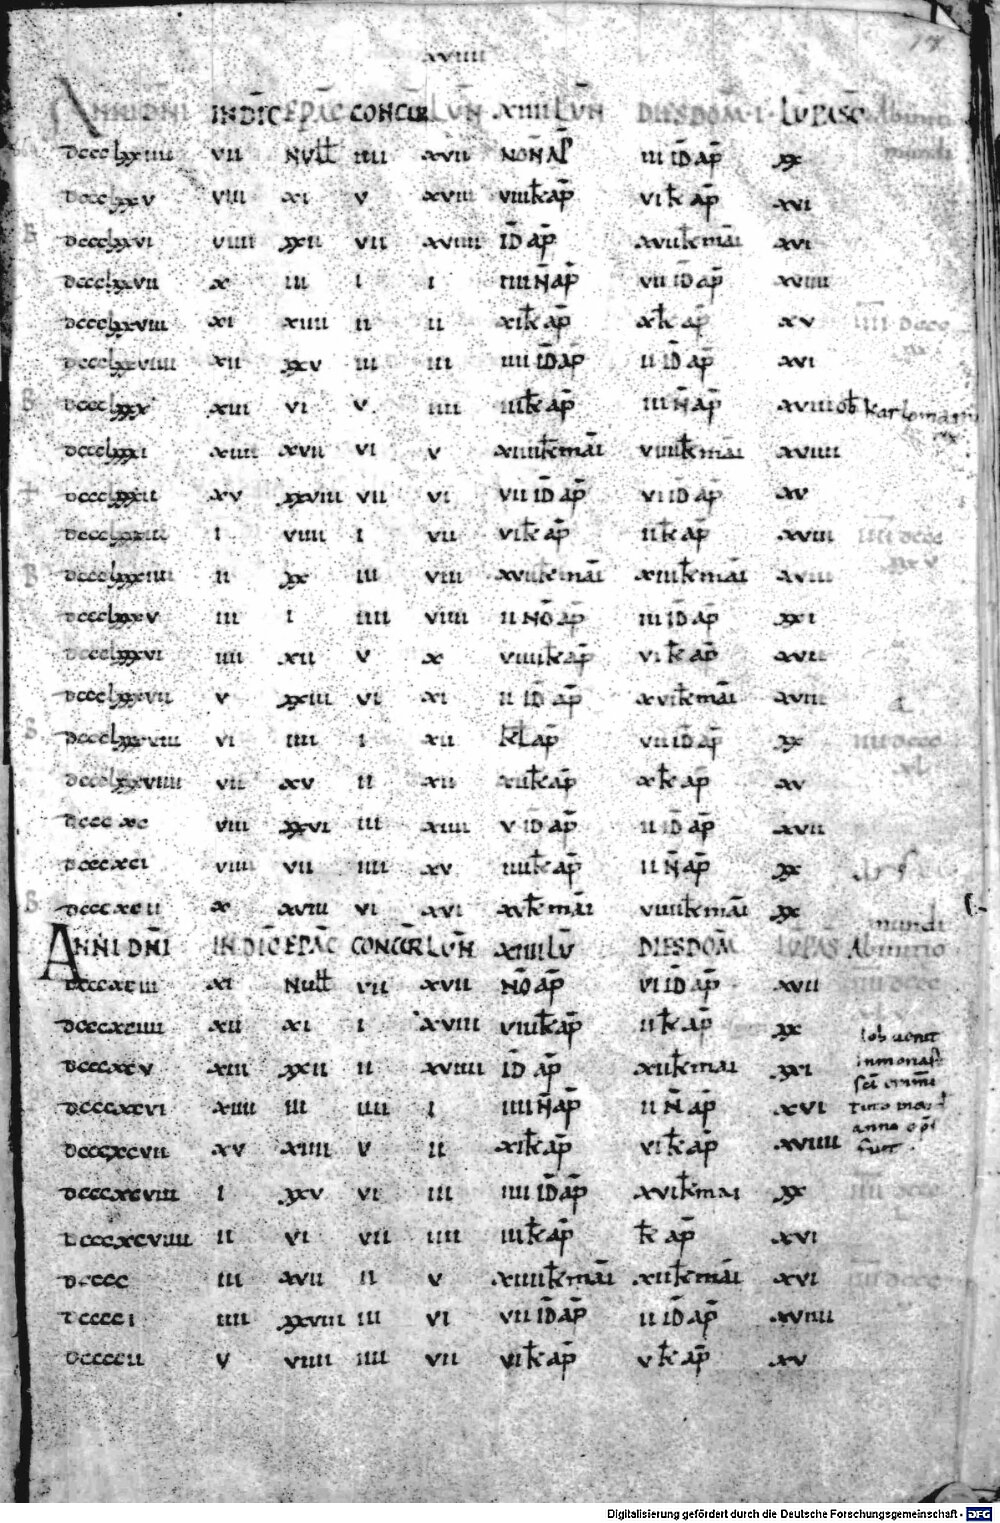 xviiii
ANNI DNI INDIC EPAC CONCUR LUN XIIII LUN DIES DOM · I · LU PASC Ab initio
mundi
dccclxxiiii vii Null iiii xvii NON AP iii ID ap xx
dccclxxv viii xi v xviii viiii k ap vi k ap xvi
B dccclxxvi viiii xxii vii xviiii ID ap xvii k mai xvi
dccclxxvii x iii i i iiii N ap vii ID ap xviiii
dccclxxviii xi xiiii ii ii xi k ap x k ap xv iiii dccc
dccclxxviiii xii xxv iii iii iiii ID ap ii ID ap xvi
B dccclxxx xiii vi v iiii iii k ap iii N ap xviii ob karlomanni
dccclxxxi xiiii xvii vi v xiiii k mai viiii k mai xviiii
dccclxxxii xv xxviii vii vi vii ID ap vi ID ap xv
dccclxxxiii i viiii i vii vi k ap ii k ap xviii iiii dccc
xxxv
B dccclxxxiiii ii xx iii viii xvii k mai xiii k mai xviii
dccclxxxv iii i iiii viiii ii NO ap iii ID ap xxi
dccclxxxvi iiii xii v x viiii k ap vi k ap xvii
dccclxxxvii v xxiii vi xi ii ID ap xvi k mai xviii
B dccclxxxviii vi iiii i xii kl ap vii ID ap xx iiii dccc
xl
dccclxxxviiii vii xv ii xii xii k ap x k ap xv
dcccxc viii xxvi iii xiiii v ID ap ii ID ap xvii
dcccxci viiii vii iiii xv iiii k ap ii N ap xx
B dcccxcii x xviii vi xvi xv k mai viiii k mai xx
mundi
ANNI DNI INDIC EPAC CONCUR LUN XIIII LU DIES DOM LU PAS Ab initio
dcccxciii xi Null vii xvii NO ap vi ID ap xvii iiii dccc
dcccxciiii xii xi i xviii viiii k ap ii k ap xx
Iob uenit
dcccxcv xiii xxii ii xviiii ID ap xii k mai xxi
in monast
sci emmi
dcccxcvi xiiii iii iiii i iiii N ap ii N ap xvi
anno epi
dcccxcvii xv xiiii v ii xi k ap vi k ap xviiii
sui
dcccxcviii i xxv vi iii iiii ID ap xvi k mai xx iiii dccc
L
dcccxcviiii ii vi vii iiii iii k ap k ap xvi
dcccc iii xvii ii v xiiii k mai xii k mai xvi iiii dccc
dcccci iiii xxviii iii vi vii ID ap ii ID ap xviiii
dccccii v viiii iiii vii vi k ap v k ap xv
Digitalisierung gefördert durch die Deutsche Forschungsgemeinschaft - DFG